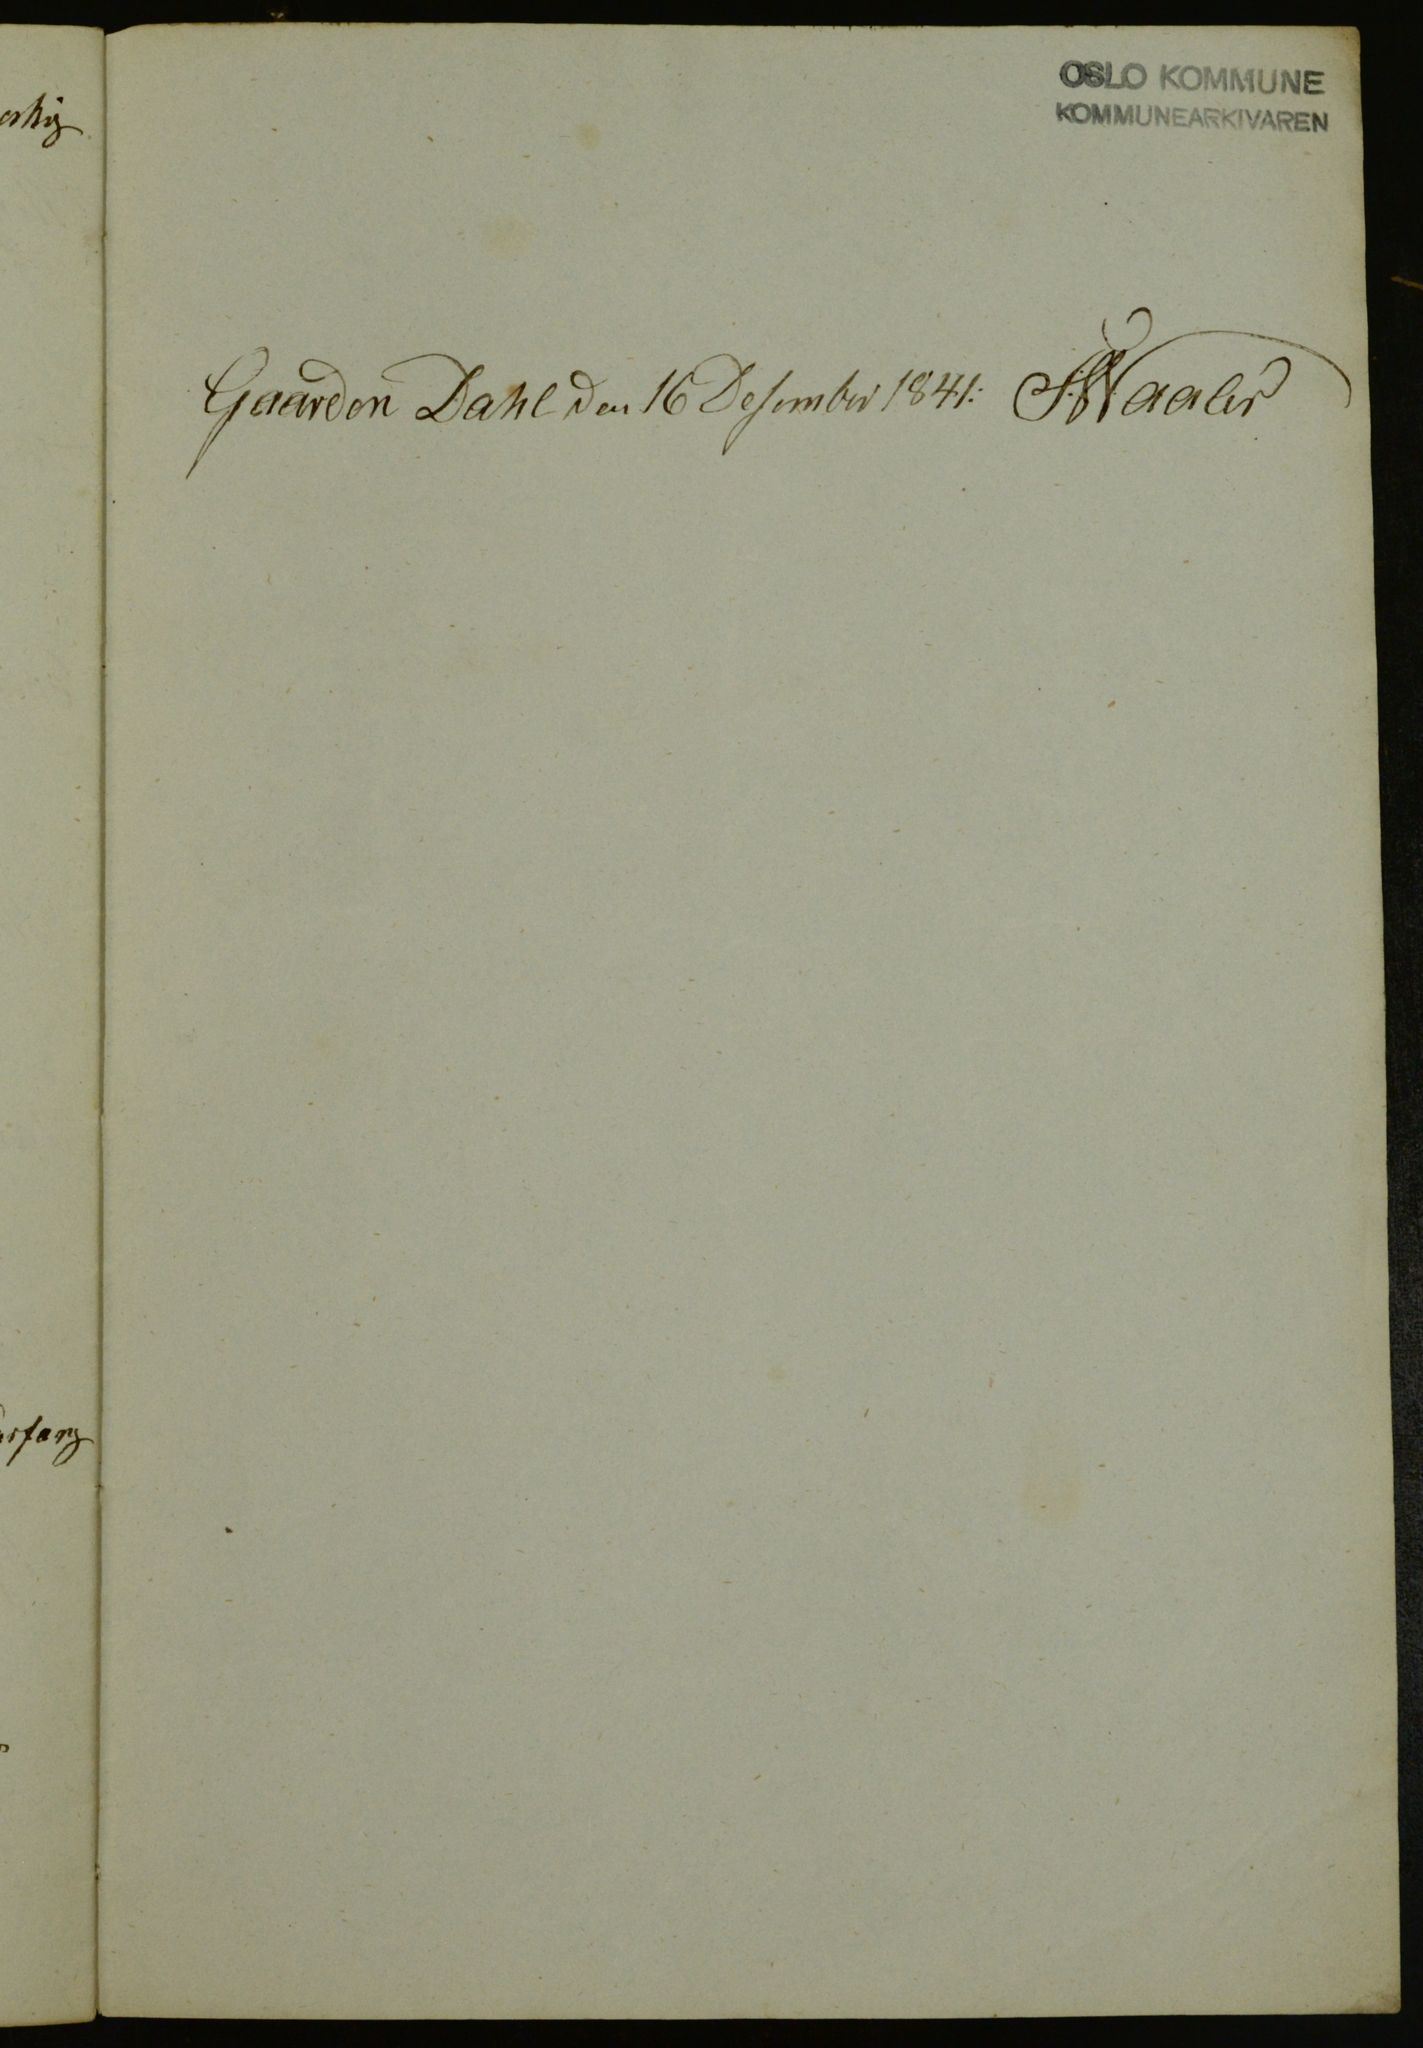 OSLO KOMMUNE
KOMMUNEARKIVAREN
Gaarden Dahl den 16 Desember 1841: S. Waaler